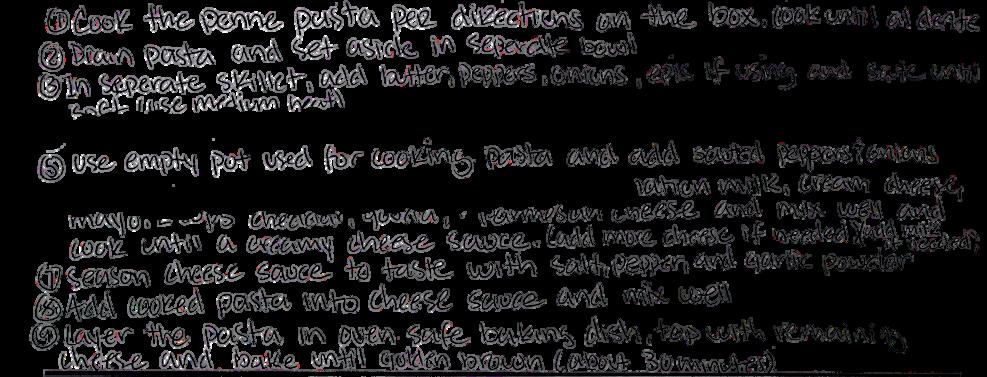 ① Cook the penne pasta per directions on the box. cook until al dente
② Drain pasta and set aside in seperate bowl
③ In seperate skillet, add butter, peppers, onions, if using and sate until
use medium heat
⑤ use empty pot used for cooking pasta and add peppers & onions
milk, cream cheese,
mayo, 2 cups cheddar, gouda, cheese and mix well and
cook until a creamy cheese sauce. (add more cheese if needed)
⑦ season cheese sauce to taste with salt, pepper and garlic powder
⑧ Add cooked pasta into cheese sauce and mix well
⑨ Layer the pasta in oven safe baking dish, top with remaining
cheese and bake until golden brown (about 30 minutes)